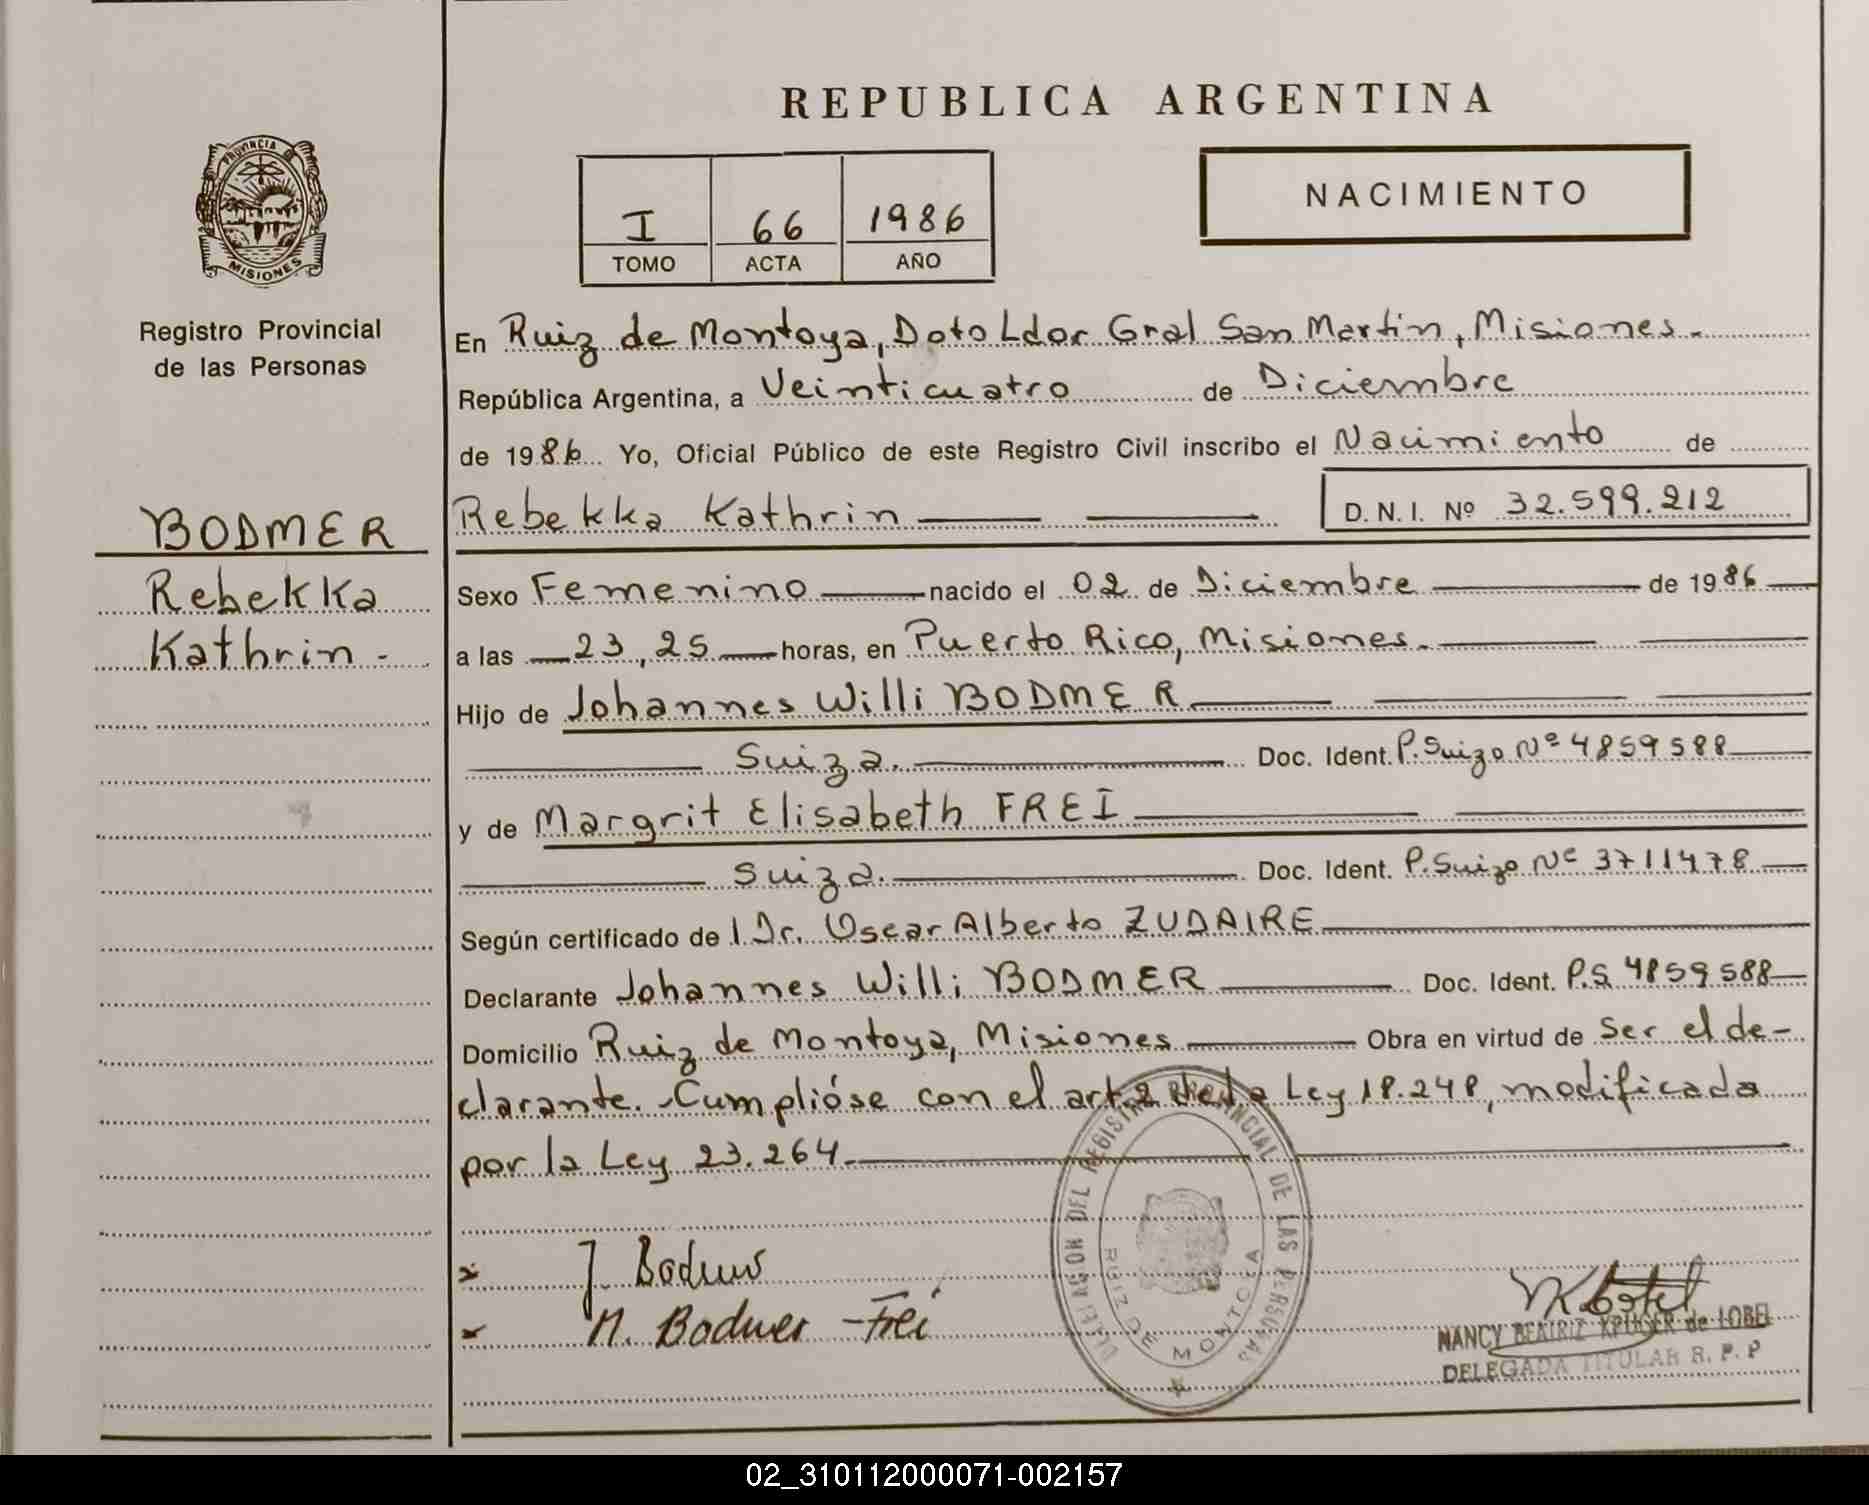 REPUBLICA ARGENTINA
PROVINCIA DE
MISIONES
Registro Provincial
de las Personas
I 66 1986
TOMO ACTA AÑO
NACIMIENTO
BODMER
Rebekka
Kathrin -
En Ruiz de Montoya, Dpto Ldor Gral San Martin, Misiones.
República Argentina, a Veinticuatro de Diciembre
de 1986 Yo, Oficial Público de este Registro Civil inscribo el Nacimiento de
Rebekka Kathrin D. N. I. Nº 32.599.212
Sexo Femenino nacido el 02 de Diciembre de 1986
a las 23,25 horas, en Puerto Rico, Misiones.
Hijo de Johannes Willi BODMER
Suiza. Doc. Ident. P. Suizo Nº 4859588
y de Margrit Elisabeth FREI
Suiza. Doc. Ident. P. Suizo Nº 3711478
Según certificado de l Dr. Oscar Alberto ZUDAIRE
Declarante Johannes Willi BODMER Doc. Ident. P.S. 4859588
Domicilio Ruiz de Montoya, Misiones Obra en virtud de Ser el de-
clarante. -Cumplióse con el art. 2 de la Ley 18.248, modificada
por la Ley 23.264.
J Bodmer
M. Bodmer - Frei
DELEGACION DEL REGISTRO PROVINCIAL DE LAS PERSONAS
RUIZ DE MONTOYA
NANCY BEATRIZ KRUGER de LOBEL
DELEGADA TITULAR R. P. P
02_310112000071-002157